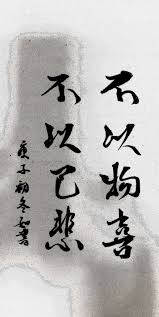 不以物喜
不以己悲
庚子初冬知書